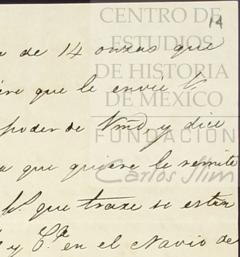 CENTRO DE
ESTUDIOS
DE HISTORIA
DE MÉXICO
FUNDACIÓN
Carlos Slim
14
de 14 onzas que
que le envíe
poder de Vmd, y dice
que quiere le remite
que traxe se estan
y Cª en el Navio de